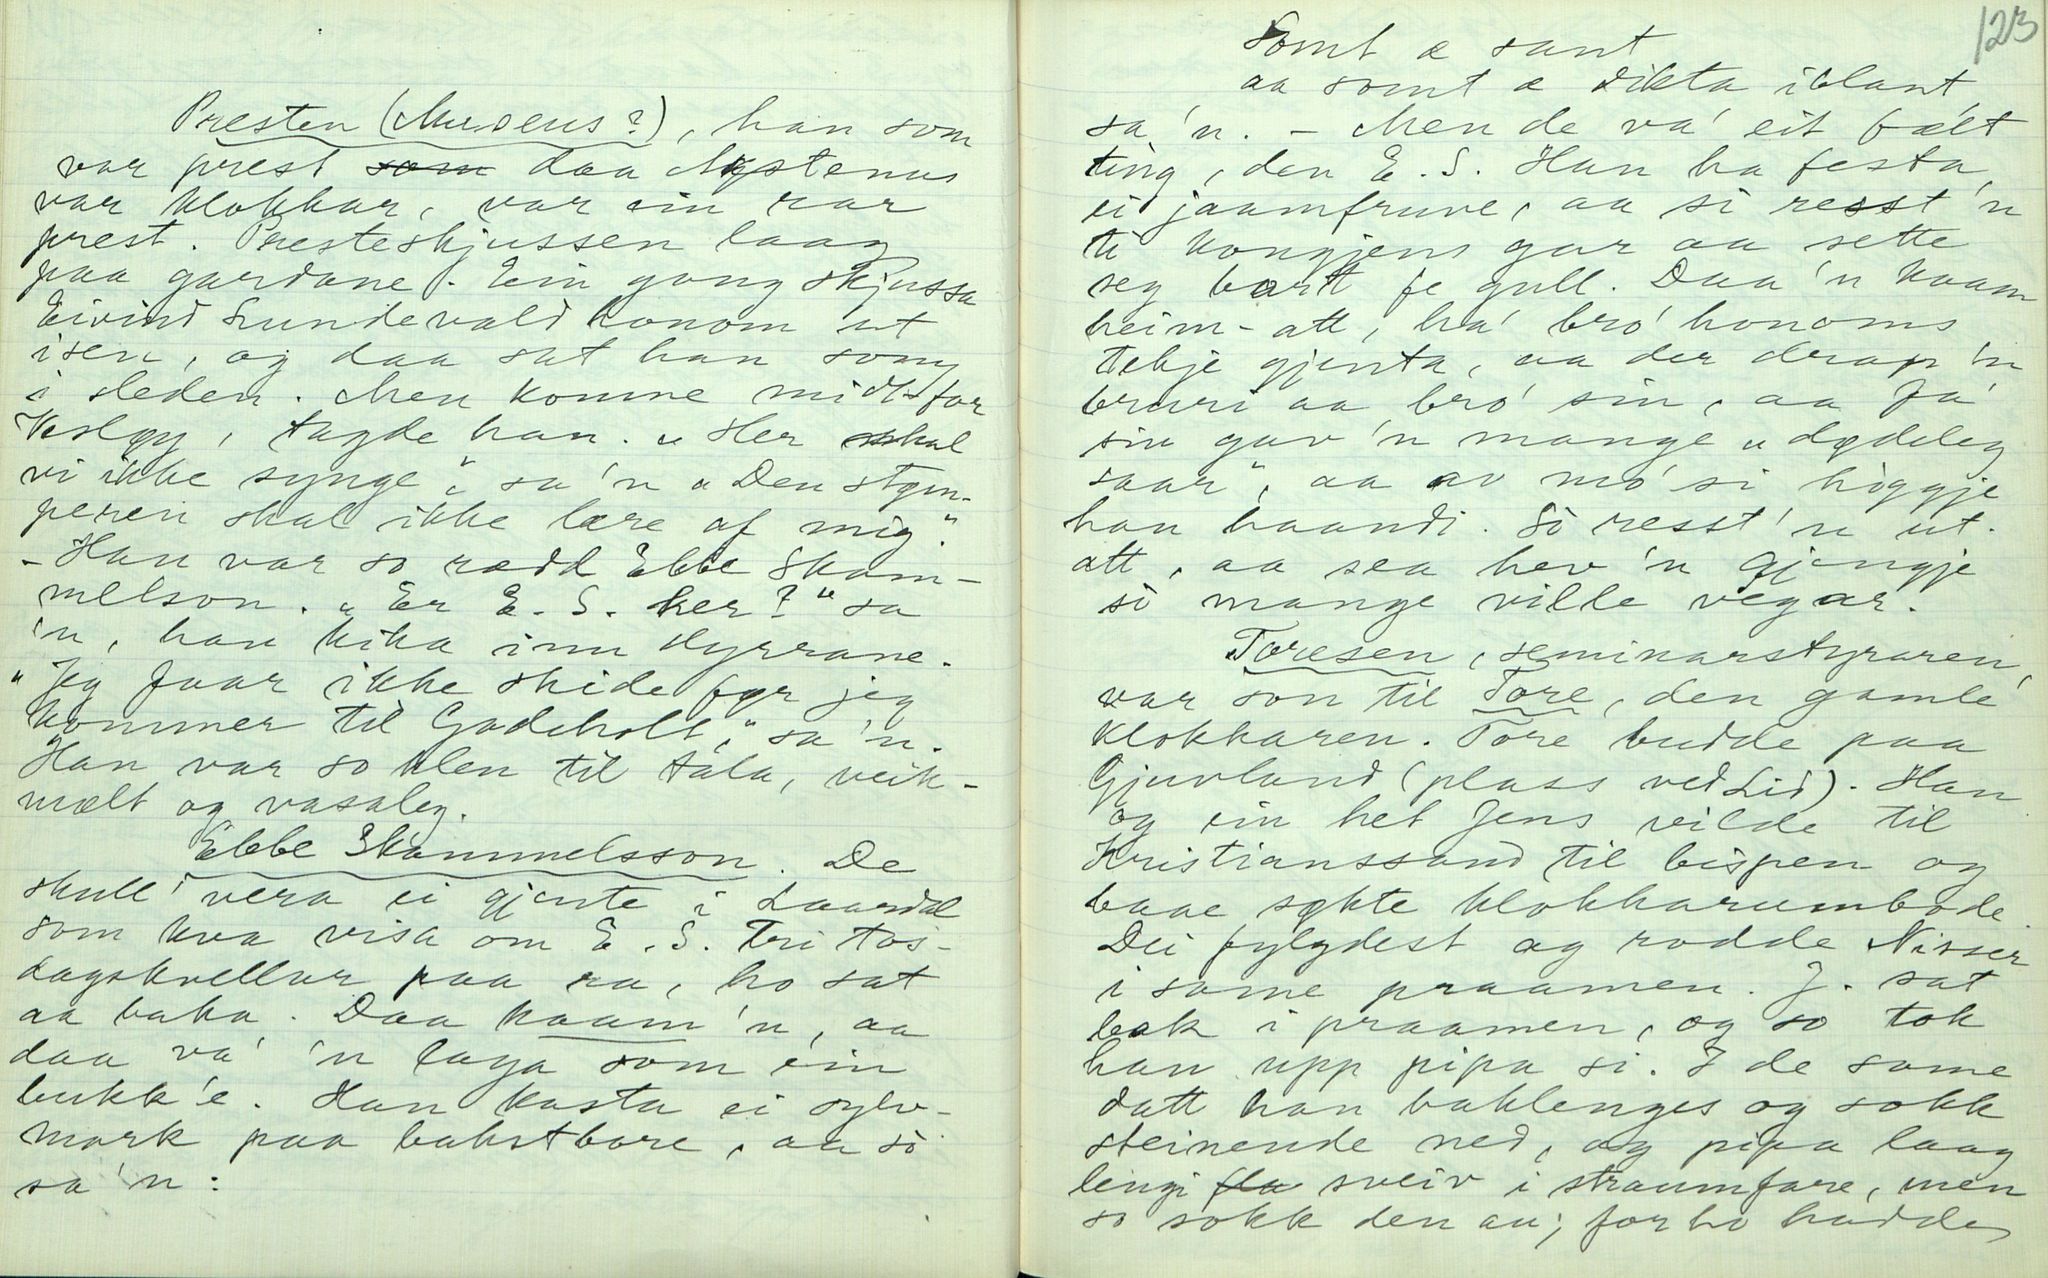 Presten (Museus?), han som
var prest som daa Mystenus
var klokkar, var ein rar
prest. Presteskjussen laag
paa gardane. Ein gong skjussa
Eivind Lundevald honom ut
isen, og daa sat han song
i sleden. Men komne midt for
, tagde han. „Her skal
vi ikke synge", sa'n „Den støm-
peren skal ikke lære af mig."
- Han var so rædd Ebbe Skam-
melson. „Er E. S. her?" sa
'n, han kika inn dyrrane.
"Jeg faar ikke skide før jeg
kommer til Gadeholt," sa'n.
Han var so klen til tala, veik-
mælt og vasaleg.
Ebbe Skammelsson. De
skull' vera ei gjente i Laardal
som kva visa om E. S. Tri tos-
dagskvellar paa ra, ho sat
aa baka. Daa kaam'n, aa
daa va' 'n laga som ein
bukk'e. Han kasta ei sylv-
mork paa bakstbore, aa so
sa'n:
123
Somt æ sant
aa somt æ dikta iblant,
sa'n. - Men de va' eit fælt
ting, den E. S. Han ha festa
ei jaamfruve, aa si resst'n
ti kongjens gar aa sette
seg bortt fe gull. Daa'n kaam
heim-att, ha' bro' honoms
tekje gjenta, aa der drap'n
bruri aa bro' sin, aa fa'
sin gav'n mange „dødeleg
saar", aa av mo' si høggje
han haandi. So resst'n ut-
att, aa sea hev'n gjengje
so mange ville vegar.
Toresen, seminarstyraren,
var son til Tore, den gamle
klokkaren. Tore budde paa
Gjuvland (plass ved Lid). Han
og ein het Jens vilde til
Kristianssand til bispen og
baae søkte klokkarumbode
Dei fylgdest og rodde Nisser
i same praamen. J. sat
bak i praamen, og so tok
han upp pipa si. I de same
datt han baklenges og sokk
steinende ned, og pipa laag
lengi fla sveiv i straumfare, men
so sokk den au; for ho hadde